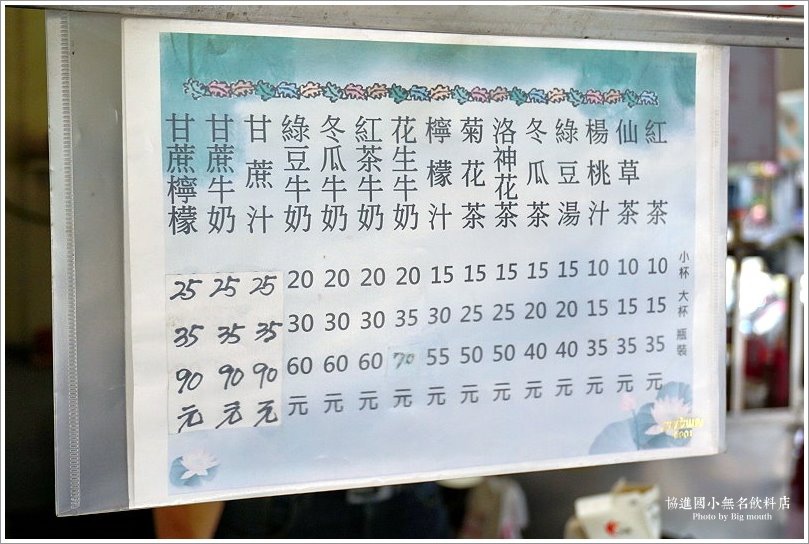 小杯 大杯 瓶裝
紅茶 10 15 35 元
仙草茶 10 15 35 元
楊桃汁 10 15 35 元
綠豆湯 15 20 40 元
冬瓜茶 15 20 40 元
洛神花茶 15 25 50 元
菊花茶 15 25 50 元
檸檬汁 15 30 55 元
花生牛奶 20 35 70 元
紅茶牛奶 20 30 60 元
冬瓜牛奶 20 30 60 元
綠豆牛奶 20 30 60 元
甘蔗汁 25 35 90 元
甘蔗牛奶 25 35 90 元
甘蔗檸檬 25 35 90 元
協進國小無名飲料店
Photo by Big mouth